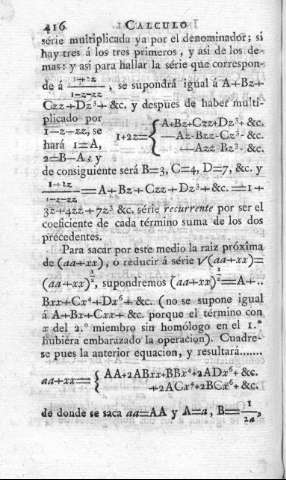 416 CALCULO
série multiplicada ya por el denominador; si
hay tres á los tres primeros, y asi de los de-
mas: y asi para hallar la série que correspon-
de á (1+2z)/(1-z-zz), se supondrá igual á A+Bz+
Czz+Dz³+&c. y despues de haber multi-
plicado por
1-z-zz, se
hará 1=A,
2=B-A; y
1+2z={ A+Bz+Czz+Dz³+ &c.
-Az-Bzz-Cz³- &c.
-Azz-Bz³- &c.
de consiguiente será B=3, C=4, D=7, &c. y
(1+2z)/(1-z-zz)=A+Bz+Czz+Dz³+&c.=1+
3z+4zz+7z³ &c. série recurrente por ser el
coeficiente de cada término suma de los dos
precedentes.
Para sacar por este medio la raiz próxima
de (aa+xx), ó reducir á série √(aa+xx)=
(aa+xx)^(1/2), supondremos (aa+xx)^(1/2)=A+..
Bxx+Cx⁴+Dx⁶+&c. (no se supone igual
á A+Bx+Cxx+&c. porque el término con
x del 2.° miembro sin homólogo en el 1.°
hubiera embarazado la operacion). Cuadre-
se pues la anterior equacion, y resultará.......
aa+xx={ AA+2ABxx+BBx⁴+2ADx⁶+ &c.
+2ACx⁴+2BCx⁶+ &c.
de donde se saca aa=AA y A=a, B=1/2a,